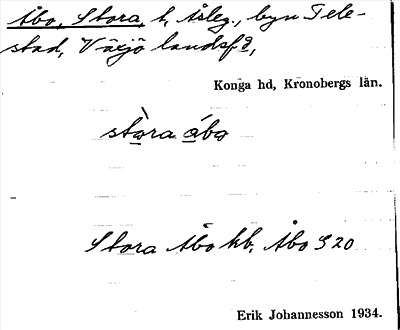 Åbo, Stora, t, Åsleg., byn Tele-
stad, Växjö landsf̲s̲,
Konga hd, Kronobergs län.
stòra ábo
Stora Åbo hb, Åbo S 20
Erik Johannesson 1934.